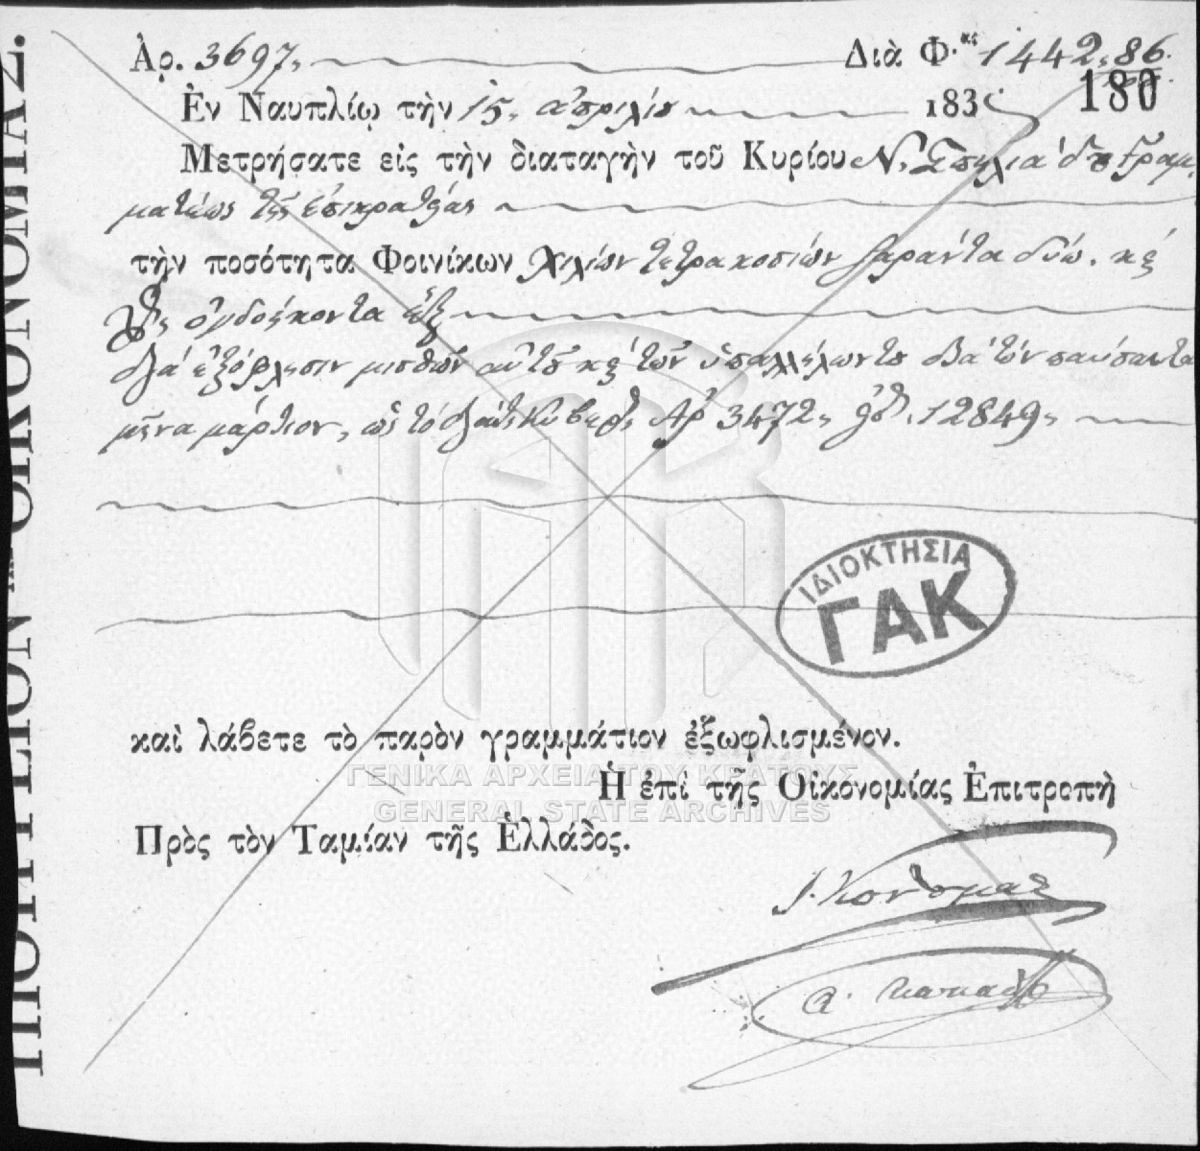 Ἀρ. 3697, Διὰ Φ.κες 1442,,86.
180
Ἐν Ναυπλίῳ τὴν 15, ἀπριλίου 183
Μετρήσατε εἰς τὴν διαταγὴν τοῦ Κυρίου Ν. Σπηλιάδου Γραμ
ματέως τῆς ἐπικρατείας
τὴν ποσότητα Φοινίκων χιλίων τετρακοσίων σαράντα δύω. κὲ
ὀγδοήκοντα ἓξ
διὰ ἐξόφλησιν μισθῶν αὐτοῦ κὲ τῶν ὑπαλλήλων του διὰ τὸν παύσαντα
μῆνα μάρτιον, ὡς τὸ Ἀρ. 3472, 12849,
καὶ λάβετε τὸ παρὸν γραμμάτιον ἐξωφλισμένον.
Ἡ ἐπὶ τῆς Οἰκονομίας Ἐπιτροπὴ
Πρὸς τὸν Ταμίαν τῆς Ἑλλάδος.
Ι. Κοντουμας
ΙΔΙΟΚΤΗΣΙΑ
ΓΑΚ
ΓΕΝΙΚΑ ΑΡΧΕΙΑ ΤΟΥ ΚΡΑΤΟΥΣ
GENERAL STATE ARCHIVES
ΟΙΚΟΝΟΜΙΑΣ.